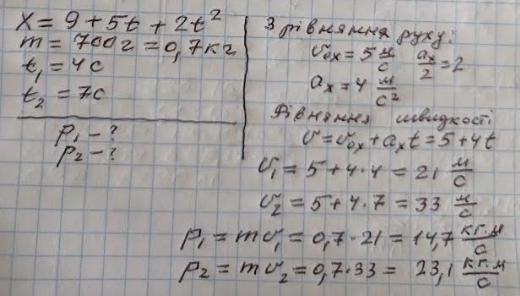 x = 9 + 5t + 2t²
m = 700г = 0,7кг
t₁ = 4с
t₂ = 7с
p₁ - ?
p₂ - ?
З рівняння руху:
v₀ₓ = 5 м/с aₓ/2 = 2
aₓ = 4 м/с²
Рівняння швидкості
v = v₀ₓ + aₓt = 5 + 4t
v₁ = 5 + 4·4 = 21 м/с
v₂ = 5 + 4·7 = 33 м/с
p₁ = mv₁ = 0,7·21 = 14,7 кг·м/с
p₂ = mv₂ = 0,7·33 = 23,1 кг·м/с